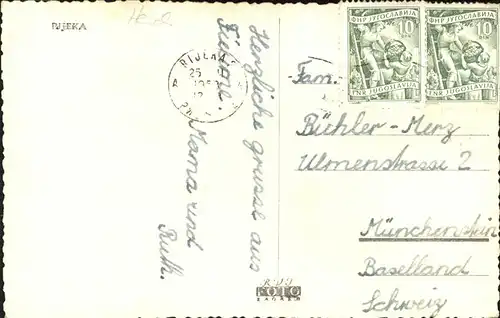 RIJEKA
Herzliche grüsse aus
Fiume.
Mama und
Ruth.
RIJEKA
25
A
ФНР ЈУГОСЛАВИЈА
10
DIN
FNR JUGOSLAVIJA
ФНР ЈУГОСЛАВИЈА
10
DIN
FNR JUGOSLAVIJA
Fam.
Bühler-Merz
Ulmenstrasse 2
Münchenstein
Baselland
Schweiz
FOTO
ZAGREB